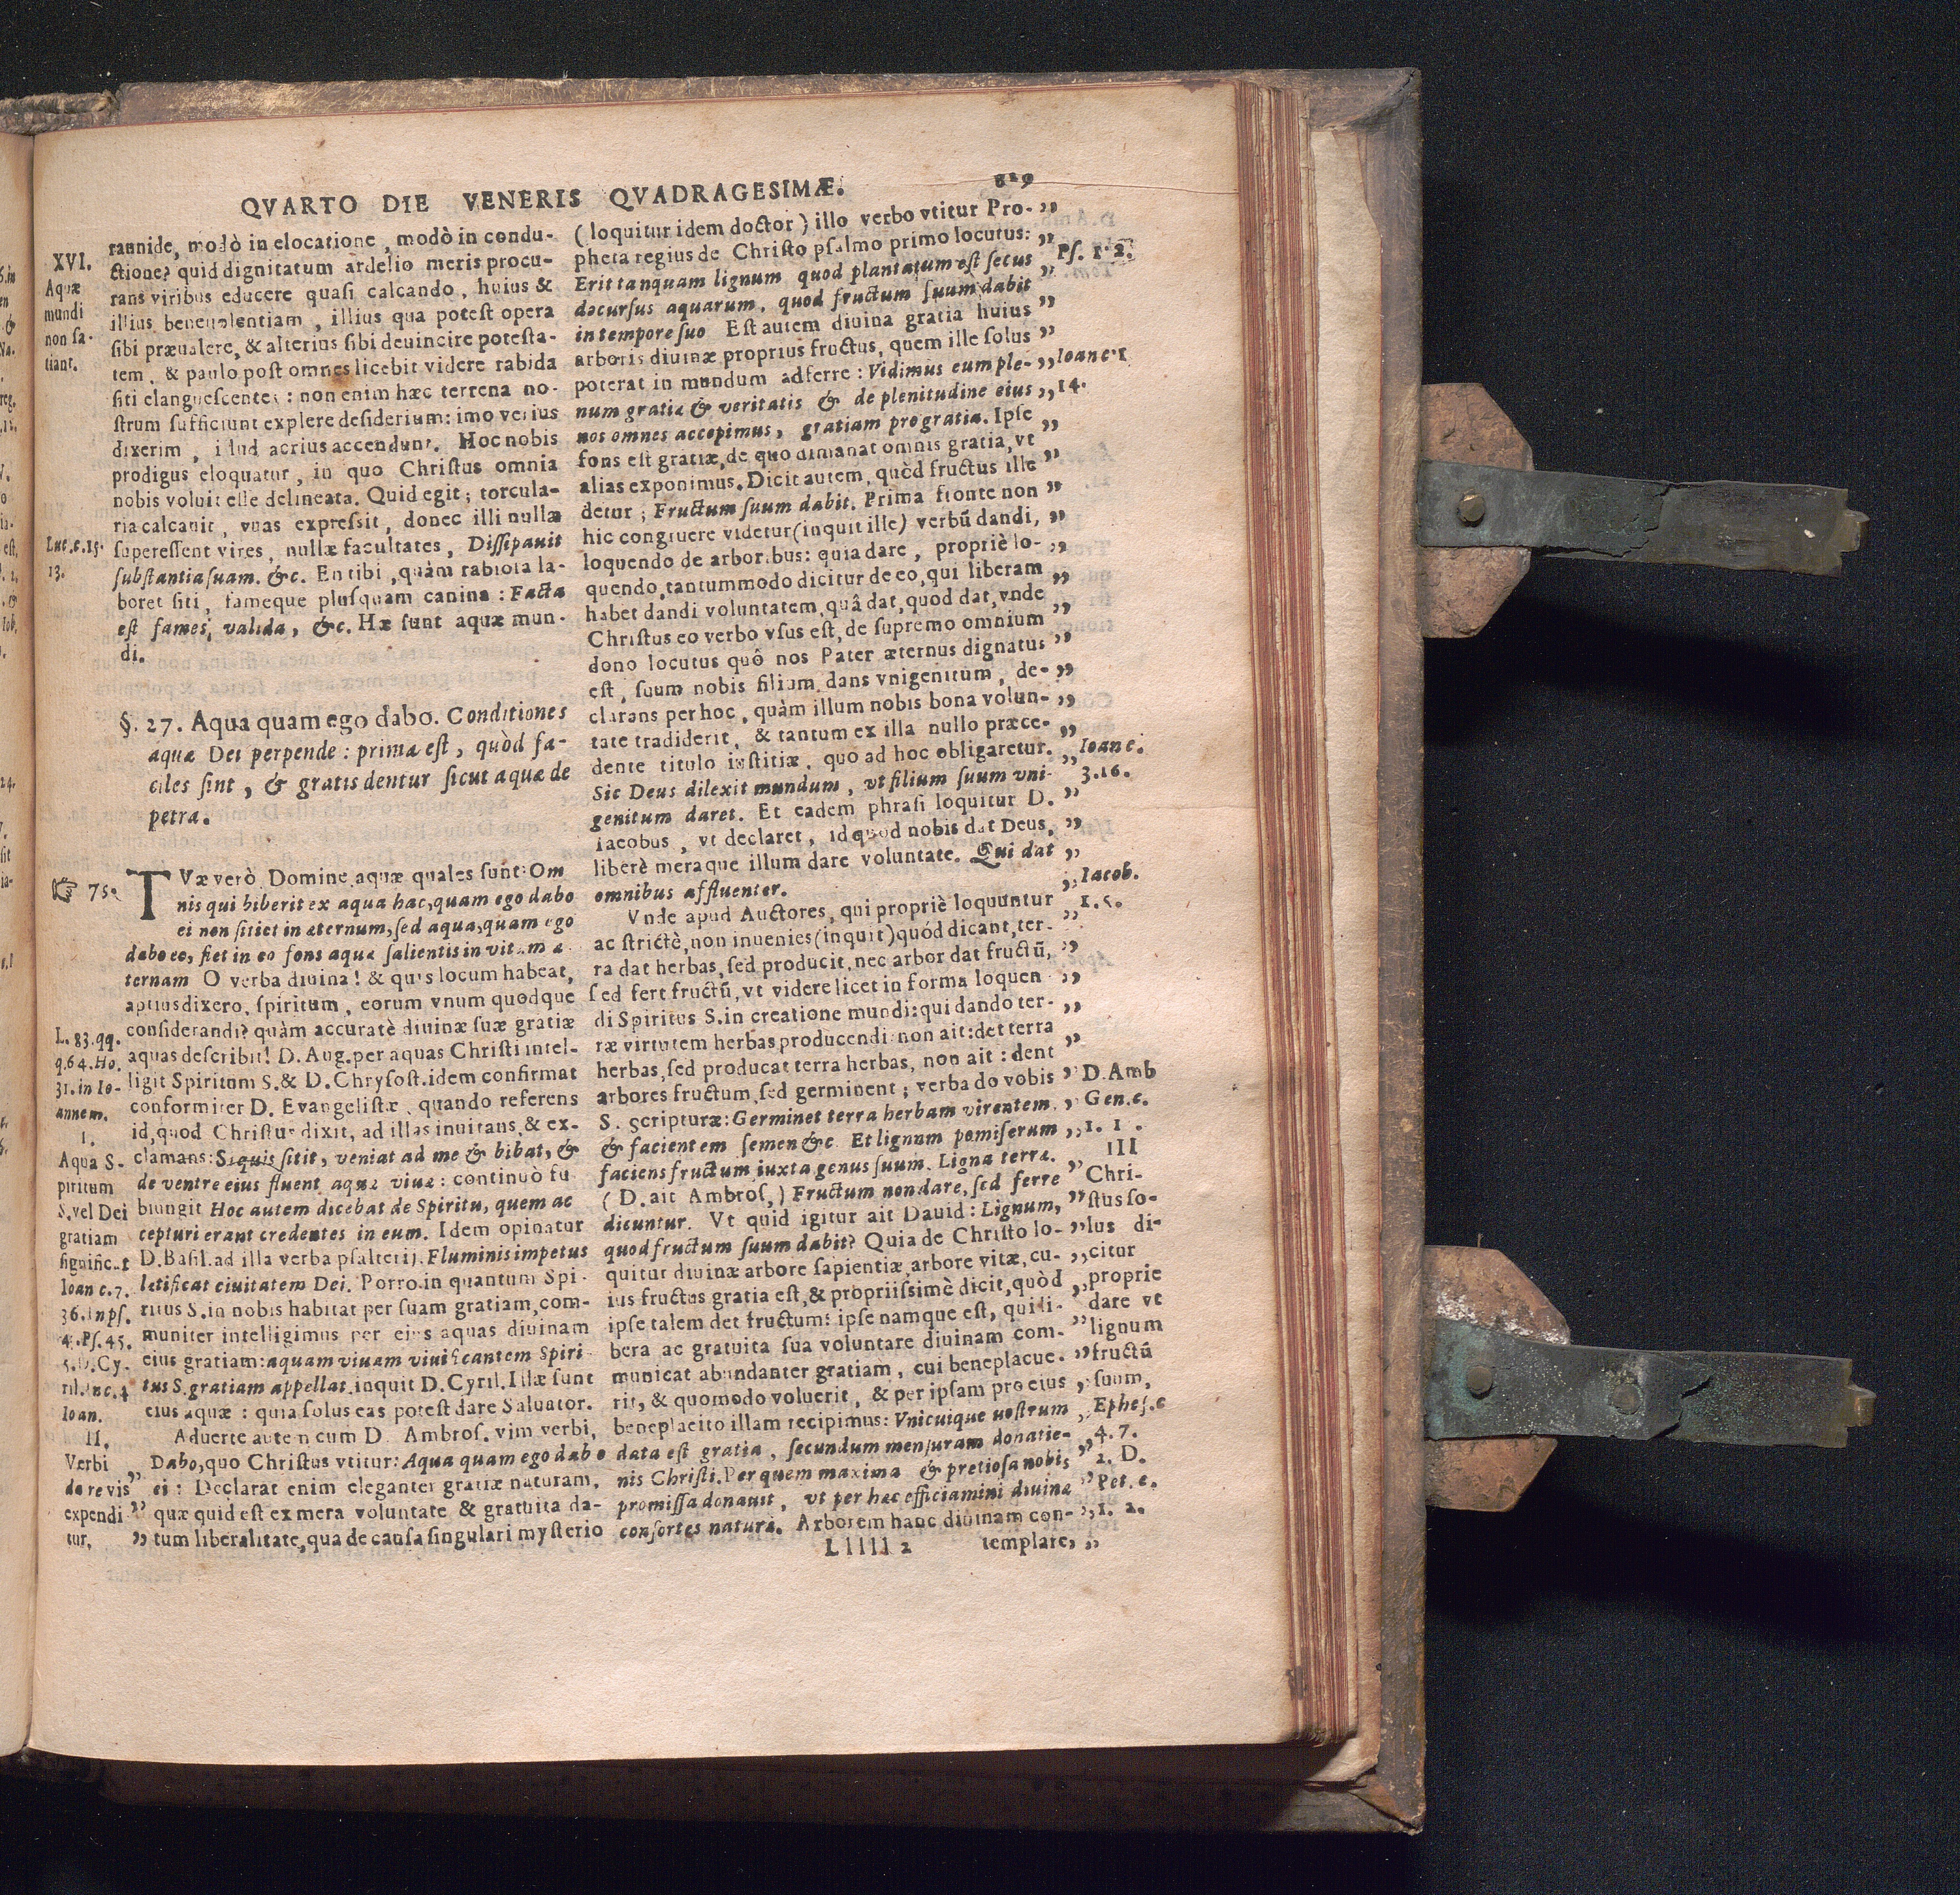 QVARTO DIE VENERIS QVADRAGESIMÆ.
819
XVI.
Aquæ
mundi
non sa-
tiant.
Luc.c.15.
13.
rannide, modò in elocatione, modò in condu-
ctione? quid dignitatum ardelio meris procu-
rans viribus educere quasi calcando, huius &
illius beneuolentiam, illius qua potest opera
sibi præualere, & alterius sibi deuincire potesta-
tem, & paulo post omnes licebit videre rabida
siti elanguescentes: non enim hæc terrena no-
strum sufficiunt explere desiderium: imo verius
dixerim, illud acrius accendunt. Hoc nobis
prodigus eloquatur, in quo Christus omnia
nobis voluit esse delineata. Quid egit; torcula-
ria calcauit, vuas expressit, donec illi nullæ
superessent vires, nullæ facultates, Dissipauit
substantia suam. &c. En tibi, quàm rabiosa la-
boret siti, fameque plusquam canina: Facta
est fames, valida, &c. Hæ sunt aquæ mun-
di.
§. 27. Aqua quam ego dabo. Conditiones
aquæ Dei perpende: prima est, quòd fa-
ciles sint, & gratis dentur sicut aquæ de
petra.
☞ 75.
L. 83.qq.
q.64.Ho.
31.in Io-
annem.
I.
Aqua S-
piritum
S.vel Dei
gratiam
significat
Ioan c.7.
36.Inps.
4.Ps.45.
5.D.Cy-
ril.Inc.4
Ioan.
II.
Verbi
dare vis
expendi
tur,
TVæ verò Domine aquæ quales sunt: Om
nis qui biberit ex aqua hac, quam ego dabo
ei non sitiet in æternum, sed aqua, quam ego
dabo eo, fiet in eo fons aquæ salientis in vitam æ-
ternam O verba diuina! & quis locum habeat,
aptius dixero, spiritum, eorum vnum quodque
considerandi? quàm accuratè diuinæ suæ gratiæ
aquas describit! D. Aug. per aquas Christi intel-
ligit Spiritum S. & D. Chrysost. idem confirmat
conformiter D. Evangelistæ, quando referens
id, quod Christus dixit, ad illas inuitans, & ex-
clamans: Si quis sitit, veniat ad me & bibat, &
de ventre eius fluent aquæ viuæ: continuò su
biungit Hoc autem dicebat de Spiritu, quem ac
cepturi erant credentes in eum. Idem opinatur
D. Basil. ad illa verba psalterij. Fluminis impetus
letificat ciuitatem Dei. Porro in quantum Spi-
ritus S. in nobis habitat per suam gratiam, com-
muniter intelligimus per eius aquas diuinam
eius gratiam: aquam viuam viuificantem Spiri-
tus S. gratiam appellat. inquit D. Cyril. Illæ sunt
eius aquæ: quia solus eas potest dare Saluator.
Aduerte autem cum D. Ambros. vim verbi,
„ Dabo, quo Christus vtitur: Aqua quam ego dabo
ei: Declarat enim eleganter gratiæ naturam,
„ quæ quid est ex mera voluntate & gratuita da-
„ tum liberalitate, qua de causa singulari mysterio
(loquitur idem doctor) illo verbo vtitur Pro- „
pheta regius de Christo psalmo primo locutus: „
Erit tanquam lignum quod plantatum est secus „
decursus aquarum, quod fructum suum dabit
in tempore suo Est autem diuina gratia huius „
arboris diuinæ proprius fructus, quem ille solus „
poterat in mundum adferre: Vidimus eum ple- „
num gratiæ & veritatis & de plenitudine eius „
nos omnes accepimus, gratiam pro gratia. Ipse
fons est gratiæ, de quo dimanat omnis gratia, vt „
alias exponimus. Dicit autem, quòd fructus ille „
detur; Fructum suum dabit. Prima fronte non „
hic congruere videtur (inquit ille) verbū dandi, „
loquendo de arboribus: quia dare, propriè lo- „
quendo, tantummodo dicitur de eo, qui liberam „
habet dandi voluntatem, quâ dat, quod dat, vnde
Christus eo verbo vsus est, de supremo omnium „
dono locutus quô nos Pater æternus dignatus „
est, suum nobis filium dans vnigenitum, de- „
clarans per hoc, quàm illum nobis bona volun- „
tate tradiderit, & tantum ex illa nullo præce- „
dente titulo iustitiæ, quo ad hoc obligaretur. „
Sic Deus dilexit mundum, vt filium suum vni-
genitum daret. Et eadem phrasi loquitur D. „
Iacobus, vt declaret, id quod nobis dat Deus, „
liberè meraque illum dare voluntate. Qui dat „
omnibus affluenter. „
Vnde apud Auctores, qui propriè loquuntur
ac strictè, non inuenies (inquit) quód dicant, ter- „
ra dat herbas, sed producit, nec arbor dat fructū, „
sed fert fructū, vt videre licet in forma loquen „
di Spiritus S. in creatione mundi: qui dando ter- „
ræ virtutem herbas producendi non ait: det terra
herbas, sed producat terra herbas, non ait: dent „
arbores fructum, sed germinent; verba do vobis „
S. scripturæ: Germinet terra herbam virentem, „
& facientem semen &c. Et lignum pomiferum „
faciens fructum iuxta genus suum. Ligna terræ. „
(D. ait Ambros,) Fructum non dare, sed ferre
dicuntur. Vt quid igitur ait Dauid: Lignum, „
quod fructum suum dabit? Quia de Christo lo- „
quitur diuinæ arbore sapientiæ, arbore vitæ, cu- „
ius fructus gratia est, & propriissimè dicit, quòd „
ipse talem det fructum: ipse namque est, qui li-
bera ac gratuita sua voluntate diuinam com- „
municat abundanter gratiam, cui beneplacue- „
rit, & quomodo voluerit, & per ipsam pro eius „
beneplacito illam recipimus: Vnicuique nostrum „
data est gratia, secundum mensuram donatio- „
nis Christi. Per quem maxima & pretiosa nobis „
promissa donauit, vt per hæc efficiamini diuinæ „
consortes naturæ. Arborem hanc diuinam con- „
Ps. 1. 2.
Ioan c. 1
14.
Ioan c.
3.16.
Iacob.
1. 5.
D. Amb
Gen.c.
1. 1.
III
Chri-
stus so-
lus di-
citur
proprie
dare vt
lignum
fructū
suum,
Ephes.c
4. 7.
2. D.
Pet. c.
1. 2.
Lllll 2
templare, „